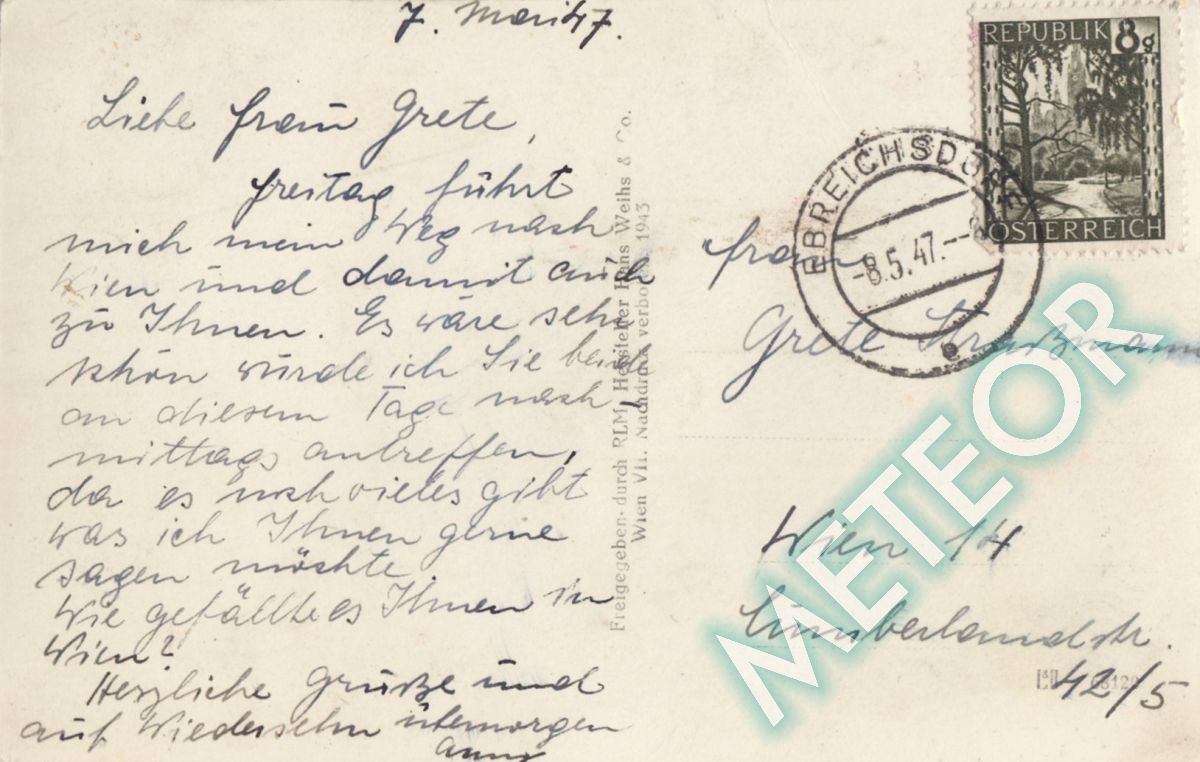 7. Mai 47.
Liebe Frau Grete,
Freitag führt
mich mein Weg nach
Wien und damit auch
zu Ihnen. Es wäre sehr
schön würde ich Sie beide
an diesem Tage nach-
mittags antreffen,
da es noch vieles gibt
was ich Ihnen gerne
sagen möchte
Wie gefällt es Ihnen in
Wien?
Herzliche Grüße und
auf Wiedersehn übermorgen
Freigegeben durch RLM. Hersteller Hans Weihs & Co.
Wien VII. Nachdruck verboten 1943
REPUBLIK 8g
ÖSTERREICH
EBREICHSDORF
-8.5.47.--8
Frau
Grete
Wien 14
Cumberlandstr.
42/5
METEOR